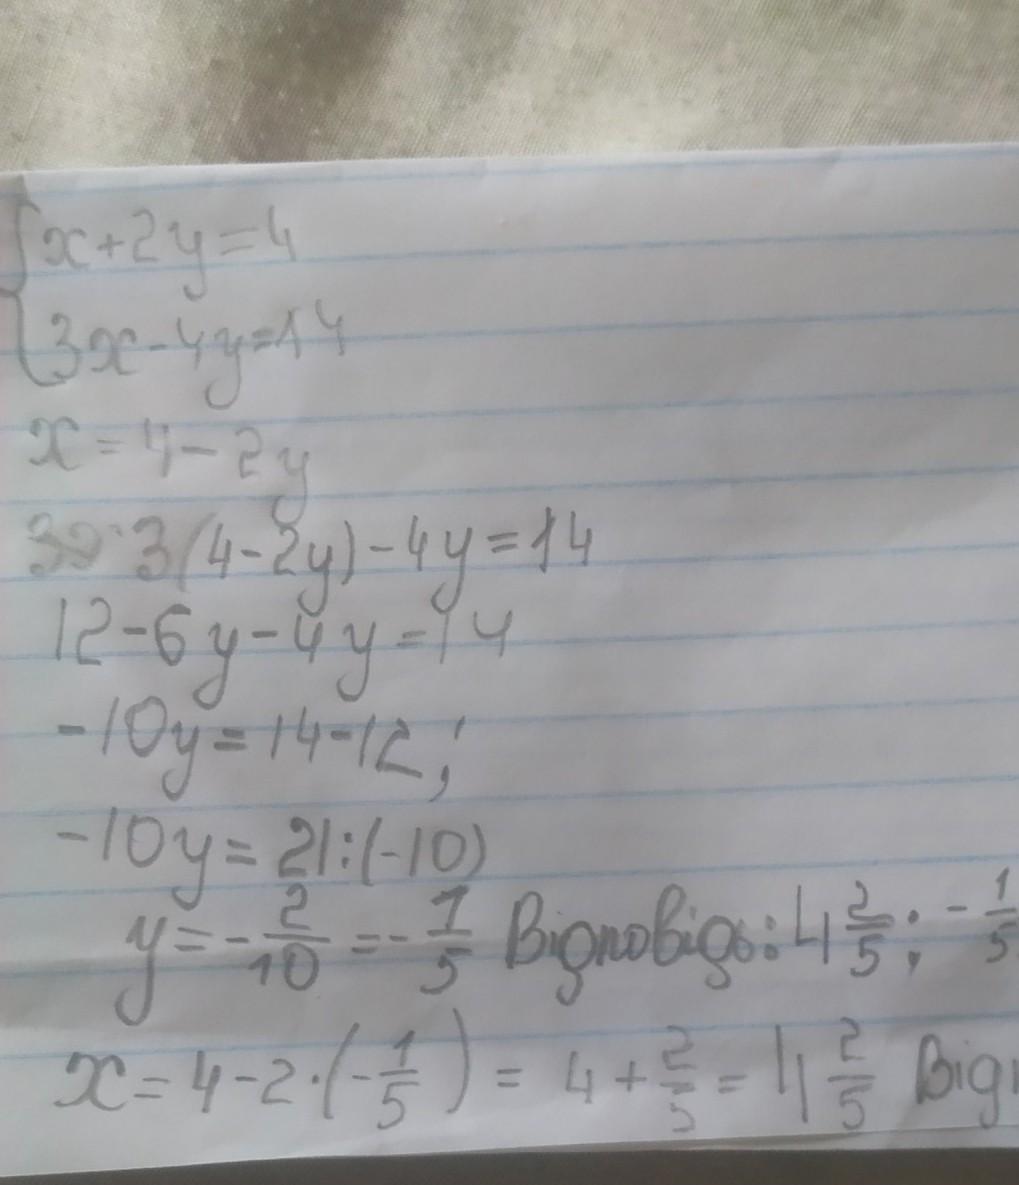 {x+2y=4
{3x-4y=14
x=4-2y
3(4-2y)-4y=14
12-6y-4y=14
-10y=14-12;
-10y=2|:(-10)
y=-2/10=-1/5 Відповідь: 4 2/5; -1/5
x=4-2·(-1/5)=4+2/5=4 2/5